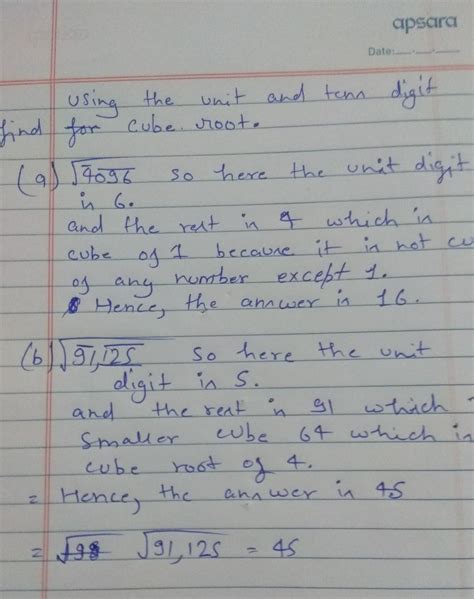 apsara
Date:
using the unit and tenn digit
find for cube root.
(a) √4096 so here the unit digit
is 6.
and the rest is 4 which is
cube of 1 because it is not cu
of any number except 1.
Hence, the answer is 16.
(b) √91,125 so here the unit
digit is 5.
and the rest is 91 which
smaller cube 64 which is
cube root of 4.
= Hence, the answer is 45
= √91,125 = 45